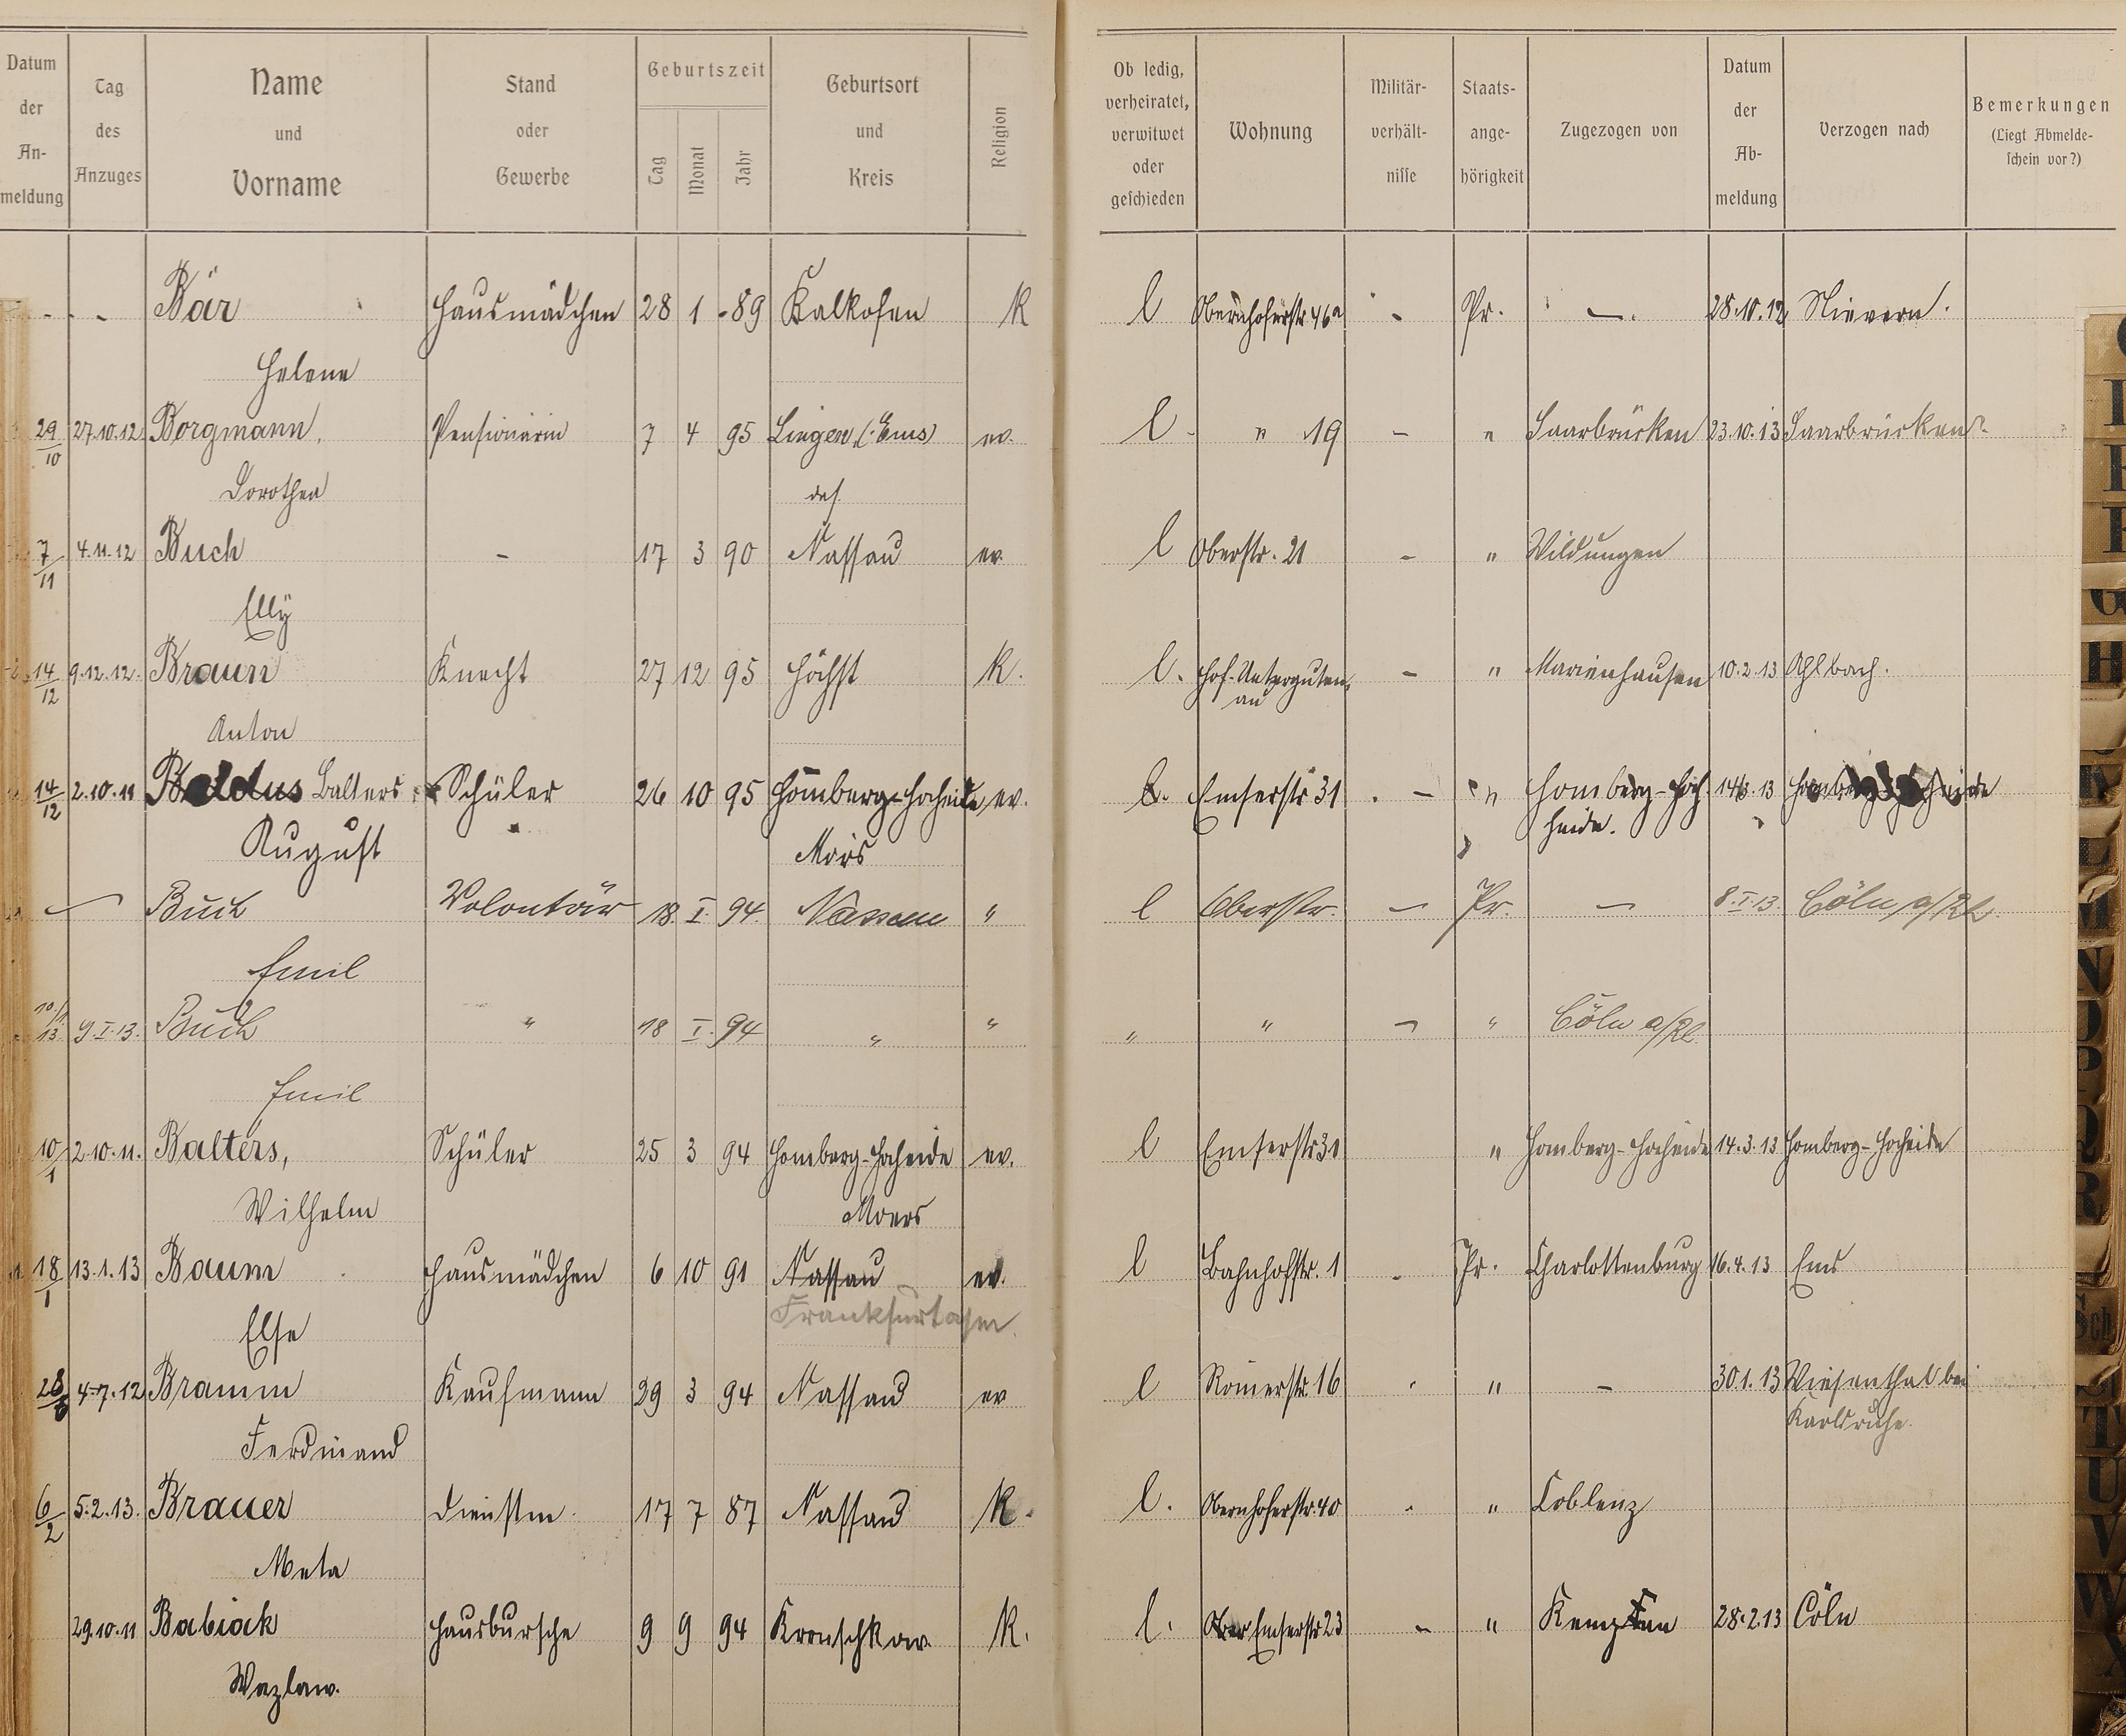 Datum der Anmeldung | Tag des Anzuges | Name und Vorname | Stand oder Gewerbe | Geburtszeit Tag Monat Jahr | Geburtsort und Kreis | Religion | Ob ledig, verheiratet, verwitwet oder geschieden | Wohnung | Militärverhältnisse | Staatsangehörigkeit | Zugezogen von | Datum der Abmeldung | Verzogen nach | Bemerkungen (Liegt Abmeldeschein vor?)
- - - Bär Hausmädchen 28 1 -89 Kalkofen K l Obernhoferstr. 46a - Pr. -. 28.10.12 Nievern.
Helene
29/10 27.10.12 Borgmann, Pensionärin 7 4 95 Lingen (Ems) ev. l - " 19 - " Saarbrücken 23.10.13 Saarbrücken
Dorothea
7/11 4.11.12 Buch - 17 3 90 Nassau ev l Oberstr. 21 - " Wildungen
Elly
14/12 9.12.12. Braun Knecht 27 12 95 Höchst K. l. Hof-Unterguten-au - " Marienhausen 10.2.13 Ahlbach.
Anton
14/12 2.10.11 Baldus Balters Schüler 26 10 95 Homberg-Hocheide ev. l. Emserstr 31 - " Homberg-Hoch-heide. 14.3.13 Homberg-Hocheide
August Mörs
- Buch Volontär 18. I. 94. Nassau " l Oberstr. - Pr. - 8.I.13. Cöln a/Rh.
Emil
10/1 13. 9.I.13. Buch " 18 I. 94 " " " " - " Cöln a/Rh.
Emil
10/1 2.10.11. Balters, Schüler 25 3 94 Homberg-Hocheide ev. l Emserstr 31 " Homberg-Hocheide 14.3.13 Homberg-Hocheide
Wilhelm Moers
18/1 13.1.13 Baum Hausmädchen 6 10 91 Nassau ev. l Bahnhofstr. 1 - Pr. Charlottenburg 16.4.13 Ems
Frankfurt a/m.
Else
4.7.12 Bramm Kaufmann 29 3 94 Nassau ev l Römerstr. 16 " - 30.1.13 Wiesenthal bei
Karlsruhe.
Ferdinand
6/2 5.2.13. Brauer Dienstm. 17 7 87 Nassau K. l. Obernhoferstr. 40 - " Coblenz
Meta
29.10.11 Babiack Hausbursche 9 9 94 Kronschkow K. l. Emserstr 23 - " Kempten 28.2.13 Cöln
Wazlaw.